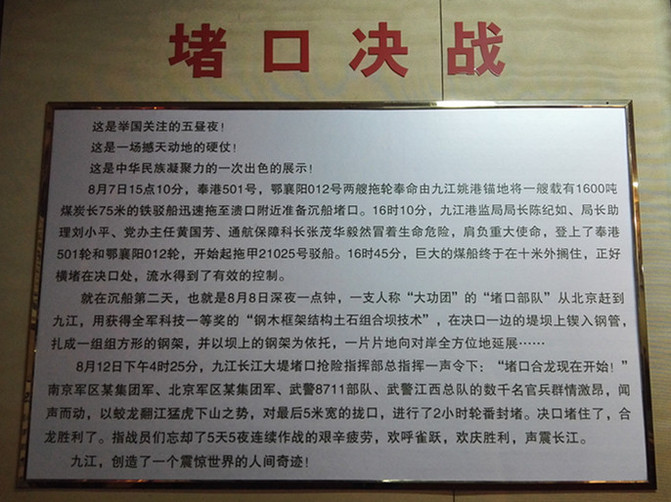 堵口决战
这是举国关注的五昼夜！
这是一场撼天动地的硬仗！
这是中华民族凝聚力的一次出色的展示！
8月7日15点10分，奉港501号，鄂襄阳012号两艘拖轮奉命由九江姚港锚地将一艘载有1600吨
煤炭长75米的铁驳船迅速拖至溃口附近准备沉船堵口。16时10分，九江港监局局长陈纪如、局长助
理刘小平、党办主任黄国芳、通航保障科长张茂华毅然冒着生命危险，肩负重大使命，登上了奉港
501轮和鄂襄阳012轮，开始起拖甲21025号驳船。16时45分，巨大的煤船终于在十米外搁住，正好
横堵在决口处，流水得到了有效的控制。
就在沉船第二天，也就是8月8日深夜一点钟，一支人称“大功团”的“堵口部队”从北京赶到
九江，用获得全军科技一等奖的“钢木框架结构土石组合坝技术”，在决口一边的堤坝上锲入钢管，
扎成一组组方形的钢架，并以坝上的钢架为依托，一片片地向对岸全方位地延展……
8月12日下午4时25分，九江长江大堤堵口抢险指挥部总指挥一声令下：“堵口合龙现在开始！”
南京军区某集团军、北京军区某集团军、武警8711部队、武警江西总队的数千名官兵群情激昂，闻
声而动，以蛟龙翻江猛虎下山之势，对最后5米宽的拢口，进行了2小时轮番封堵。决口堵住了，合
龙胜利了。指战员们忘却了5天5夜连续作战的艰辛疲劳，欢呼雀跃，欢庆胜利，声震长江。
九江，创造了一个震惊世界的人间奇迹！